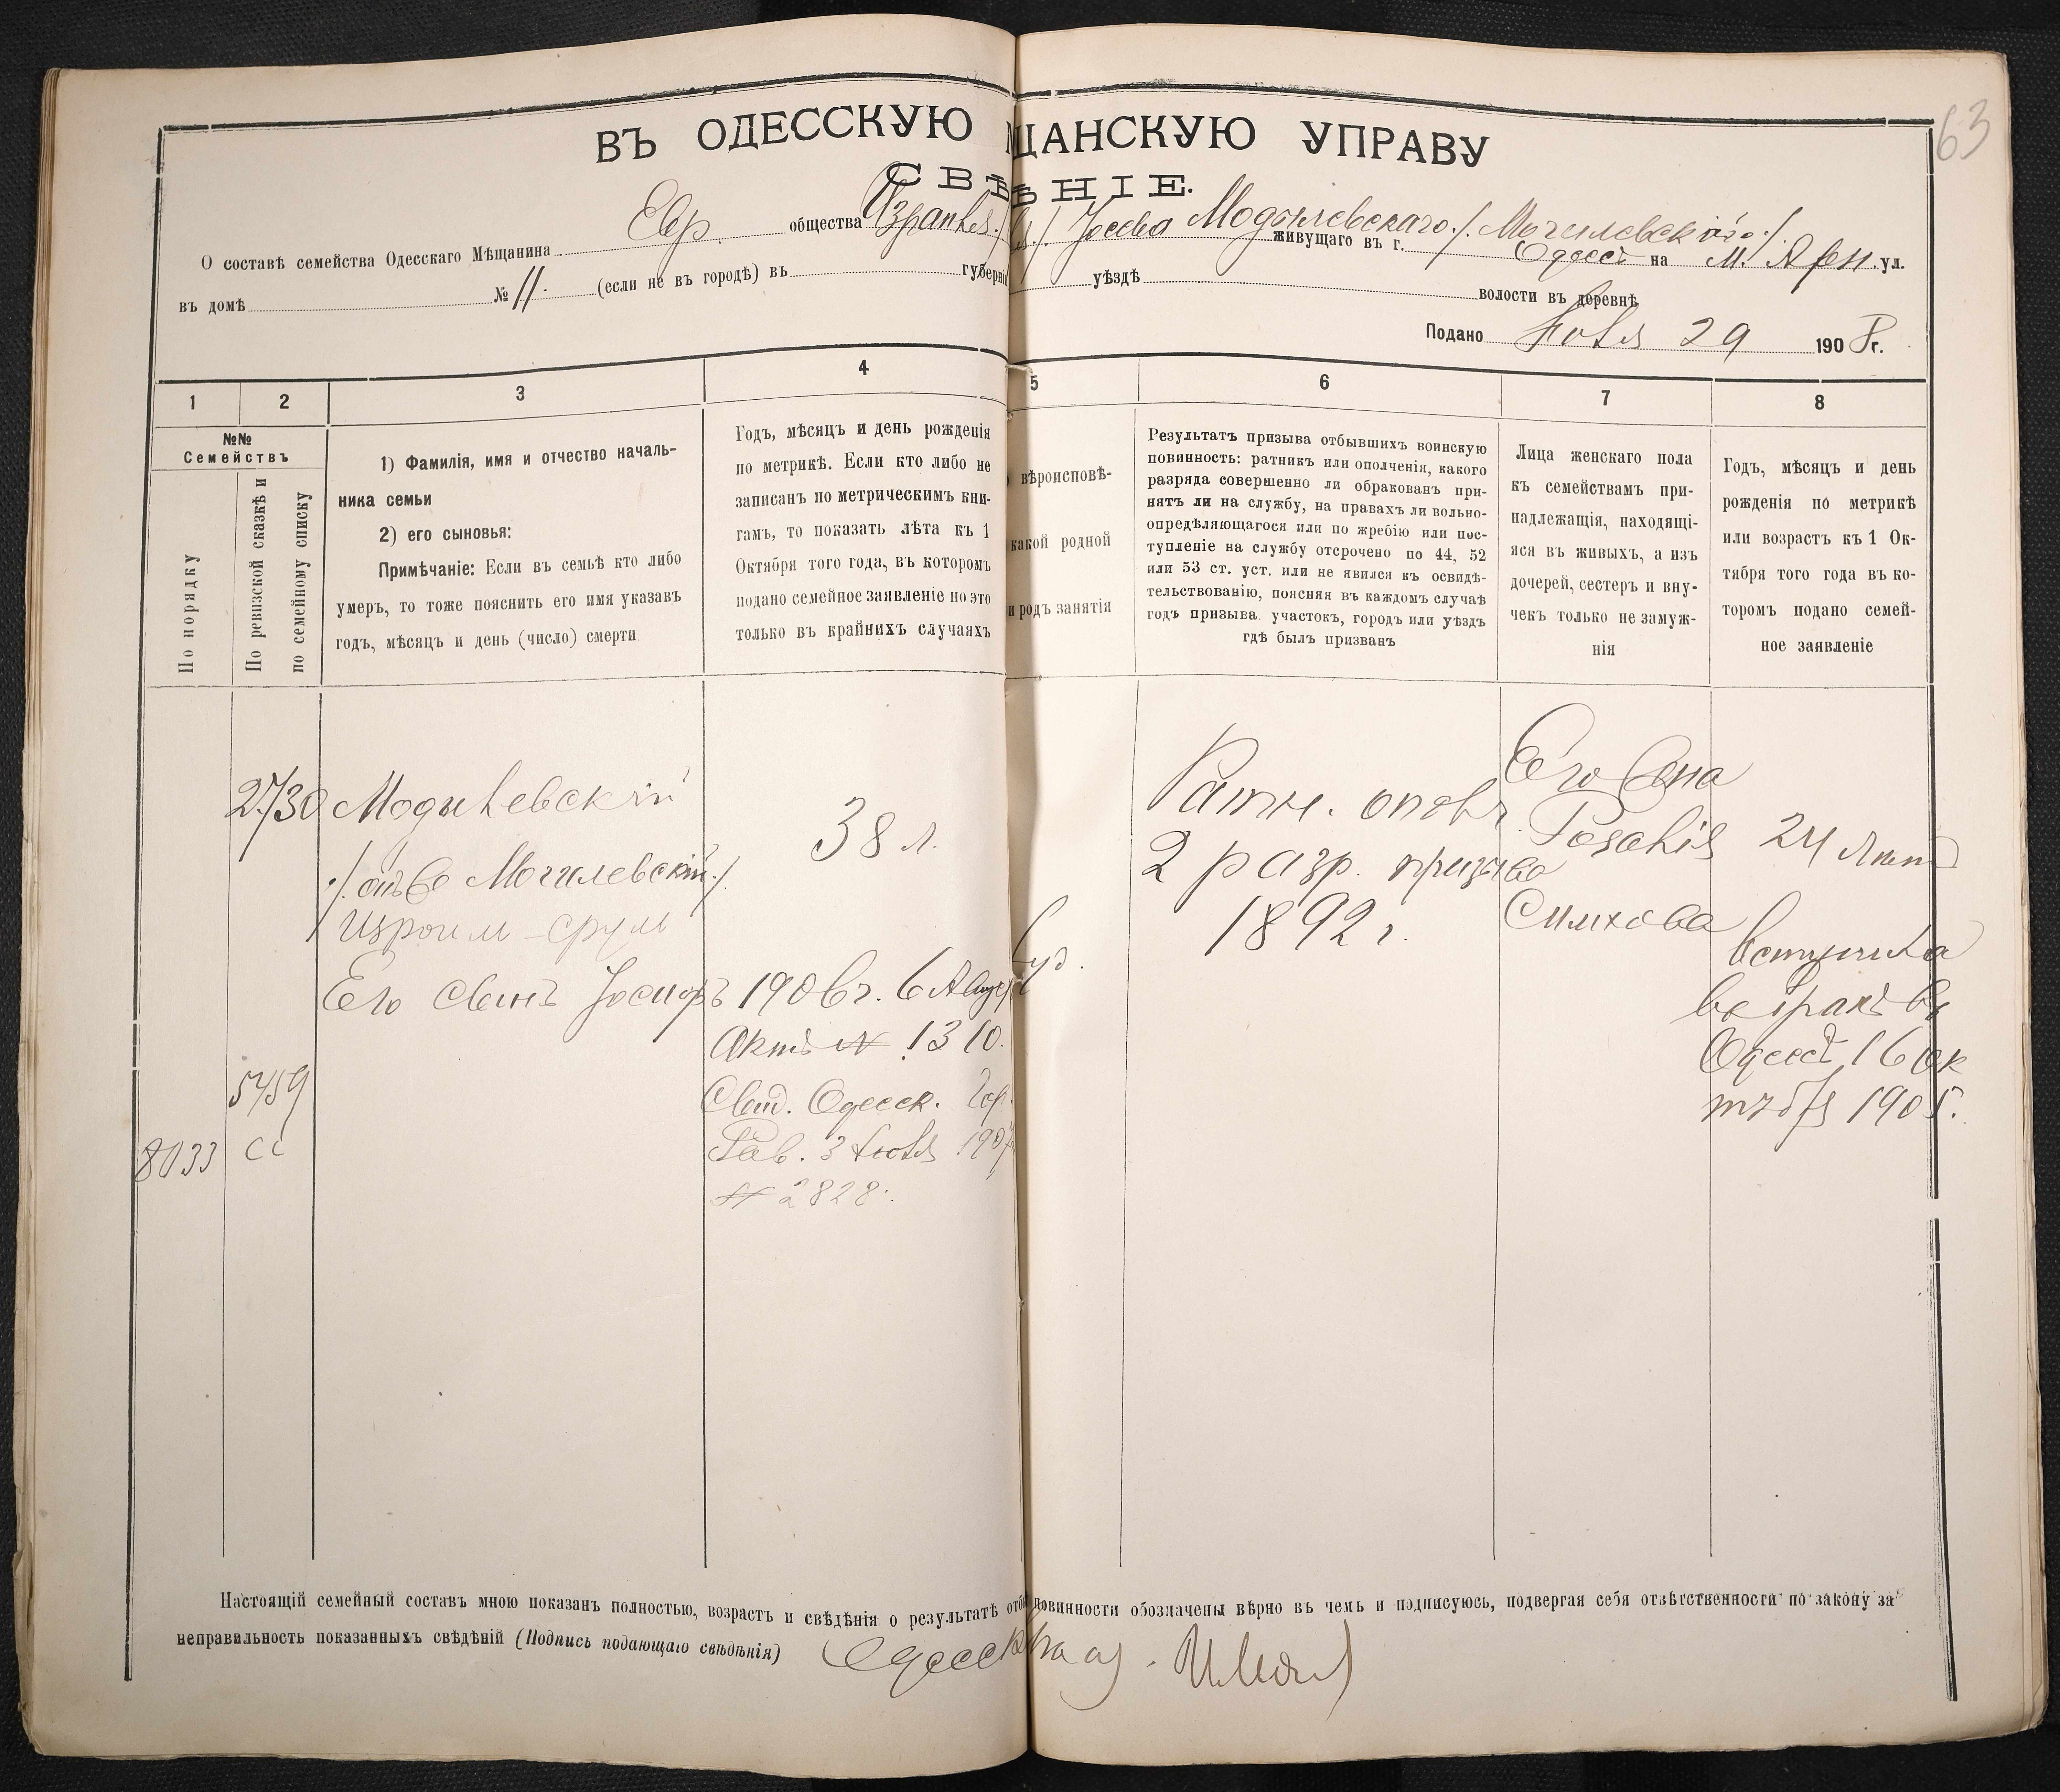 63
ВЪ ОДЕССКУЮ ЩАНСКУЮ УПРАВУ
СВѢ ѢНІЕ.
О составѣ семейства Одесскаго Мѣщанина Евр. общества Іосева Модылевскаго /. Могилевскаго ./.
живущаго въ г. Одессѣ на М. Арн. ул.
въ домѣ № 11. (если не въ городѣ) въ губерні уѣздѣ волости въ деревнѣ
Подано Іюля 29 1908 г.
1 2 3 4 5 6 7 8
№№
Семействъ
По порядку
По ревизской сказкѣ и
по семейному списку
1) Фамилія, имя и отчество началь-
ника семьи
2) его сыновья:
Примѣчаніе: Если въ семьѣ кто либо
умеръ, то тоже пояснить его имя указавъ
годъ, мѣсяцъ и день (число) смерти
Годъ, мѣсяцъ и день рожденія
по метрикѣ. Если кто либо не
записанъ по метрическимъ кни-
гамъ, то показать лѣта къ 1
Октября того года, въ которомъ
подано семейное заявленіе но это
только въ крайнихъ случаяхъ
вѣроисповѣ-
какой родной
и родъ занятія
Результатъ призыва отбывшихъ воинскую
повинность: ратникъ или ополченія, какого
разряда совершенно ли обракованъ при-
нятъ ли на службу, на правахъ ли вольно-
опредѣляющагося или по жребію или пос-
тупленіе на службу отсрочено по 44, 52
или 53 ст. уст. или не явился къ освидѣ-
тельствованію, поясняя въ каждомъ случаѣ
годъ призыва. участокъ, городъ или уѣздъ
гдѣ былъ призванъ
Лица женскаго пола
къ семействамъ при-
надлежащія, находящі-
яся въ живыхъ, а изъ
дочерей, сестеръ и вну-
чекъ только не замуж-
нія
Годъ, мѣсяцъ и день
рожденія по метрикѣ
или возрастъ къ 1 Ок-
тября того года въ ко-
торомъ подано семей-
ное заявленіе
2730 Модилевскій
Могилевскій ./.
Изроил - Срул
38 л.
Іуд.
Ратн. опол.
2 разр. призыва
1892 г.
Его жена
Розалія
Симхова
24 лет
вступила
въ бракъ въ
Одессѣ 16 ок
тября 1905.
Его сынъ Іосифъ
1906 г. 6 Авгус
Актъ № 1310.
Свид. Одесск. Гор.
Рав. 3 Іюля 190
№ 2828.
5459
8033 сс
Настоящій семейный составъ мною показанъ полностью, возрастъ и свѣдѣнія о результатѣ отб повинности обозначены вѣрно въ чемъ и подписуюсь, подвергая себя отвѣтственности по закону за
неправильность показанныхъ свѣдѣній (Подпись подающаго свѣдѣнія)